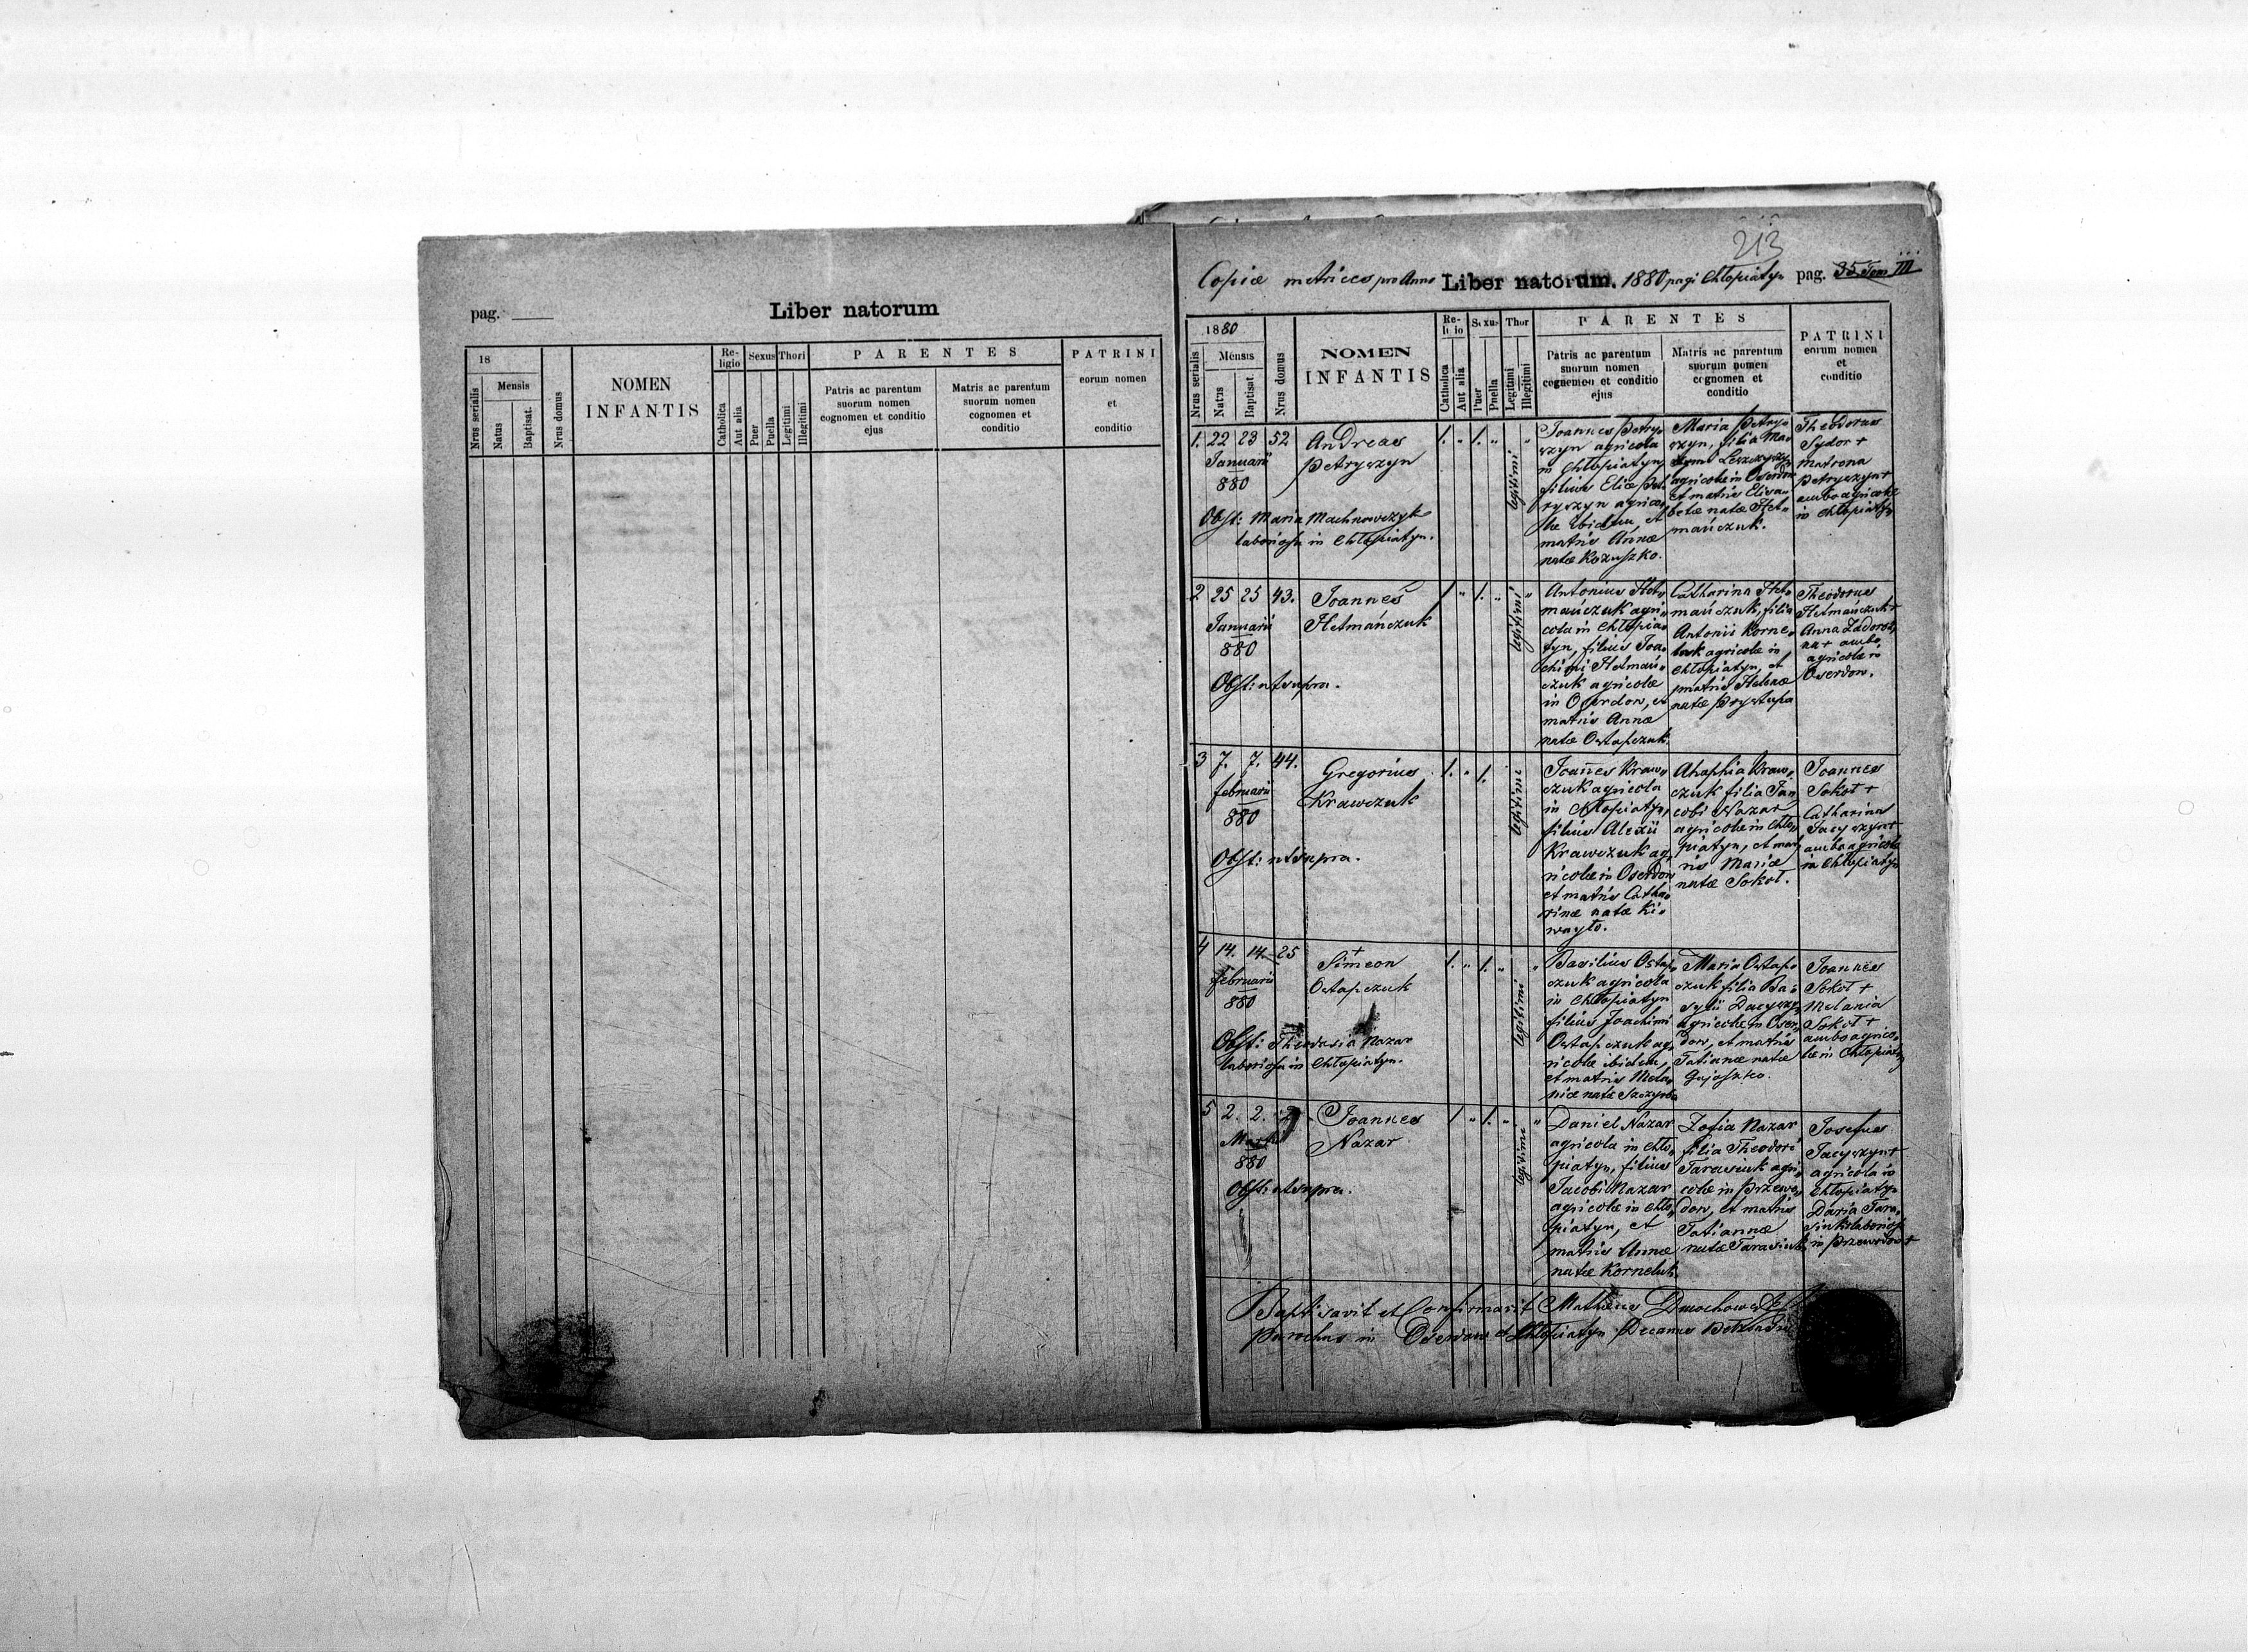 pag.
Liber natorum
18
Mensis
Nrus serialis
Natus
Baptisat.
Nrus domus
NOMEN
INFANTIS
Re-
ligio
Catholica
Aut alia
Sexus
Puer
Puella
Thori
Legitimi
Illegitimi
PARENTES
Patris ac parentum
suorum nomen
cognomen et conditio
ejus
Matris ac parentum
suorum nomen
cognomen et
conditio
PATRINI
eorum nomen
et
conditio
213
Copiæ metrices pro Anno Liber natorum. 1880 pagi Chłopiatyn pag. 35 Tom III
1880
Mensis
Nrus serialis
Natus
Baptisat.
Nrus domus
NOMEN
INFANTIS
Re-
li io
Catholica
Aut alia
Sexus
Puer
Puella
Thor
Legitimi
Illegitimi
PARENTES
Patris ac parentum
suorum nomen
cognomen et conditio
ejus
Matris ac parentum
suorum nomen
cognomen et
conditio
PATRINI
eorum nomen
et
conditio
1. 22 23 52
Januarii
880
Andreas
Petryszyn
1. " 1. " "
legitimi
Obst: Maria Machnowczyk
laboriosa in Chłopiatyn.
Joannes Petry-
szyn agricola
in Chłopiatyn,
filius Eliæ Pet-
ryszyn agrico-
læ ibidem, et
matris Annæ
natæ Kozuszko.
Maria Petry-
szyn, filia
agricolæ in Oserdow
et matris Elisa-
betæ natæ Het-
mańczuk.
Theodorus
Sydor +
Matrona
Petryszyn +
ambo agricolæ
in Chłopiatyn
2 25 25 43.
Januarii
880
Joannes
Hetmańczuk
1 " 1. " "
legitimi
Obst: ut supra.
Antonius Het-
mańczuk agri-
cola in Chłopia-
tyn, filius Joa-
chimi Hetmań-
czuk agricolæ
in Oserdow, et
matris Annæ
natæ Ostapczuk.
Catharina Het-
mańczuk, filia
Antonii Korne-
luk agricolæ in
Chłopiatyn, et
matris Helenæ
natæ Prystupa
Theodorus
Hetmańczuk +
Anna Zadoroż-
na + ambo
agricolæ in
Oserdow.
3 7. 7. 44.
februarii
880
Gregorius
Krawczuk
1. " 1.
legitimi
Obst: ut supra.
Joannes Kraw-
czuk agricola
in Chłopiatyn,
filius Alexii
Krawczuk ag-
ricolæ in Oserdow
et matris Catha-
rinæ natæ Ki-
wayło.
Ahaphia Kraw-
czuk filia Ja-
cobi Nazar
agricolæ in Chło-
piatyn, et mat-
ris Mariæ
natæ Sokoł.
Joannes
Sokoł +
Catharina
Jacyszyn +
ambo agricolæ
in Chłopiatyn
4 14. 14. 25
februarii
880
+
Simeon
Ostapczuk
1. " 1. " "
legitimi
Obst: Theodosia Nazar
laboriosa in Chłopiatyn.
Basilius Ostap-
czuk agricola
in Chłopiatyn
filius Joachimi
Ostapczuk ag-
ricolæ ibidem,
et matris Mela-
niæ natæ Szczyrba
Maria Ostap-
czuk filia Ba-
sylii Dacyszyn
agricolæ in Oser-
dow, et matris
Tatianæ natæ
Gujaszko.
Joannes
Sokoł +
Melania
Sokoł +
ambo agrico-
læ in Chłopiatyn
5 2. 2.
Martii
880
Joannes
Nazar
1 " 1. " "
legitimi
Obst: ut supra.
Daniel Nazar
agricola in Chło-
piatyn, filius
Jacobi Nazar
agricolæ in Chło-
piatyn, et
matris Annæ
natæ Korneluk.
Zofia Nazar
filia Theodori
Tarasiuk agri-
colæ in Przewo-
dow, et matris
Tatiannæ
natæ Tarasiuk
Josefus
Jacyszyn +
agricola in
Chłopiatyn
Daria Tara-
siuk laboriosa
in Przewodow +
Baptisavit et Confirmavit Matheus Dmochowski
Parochus in Oserdow et Chłopiatyn Decanus